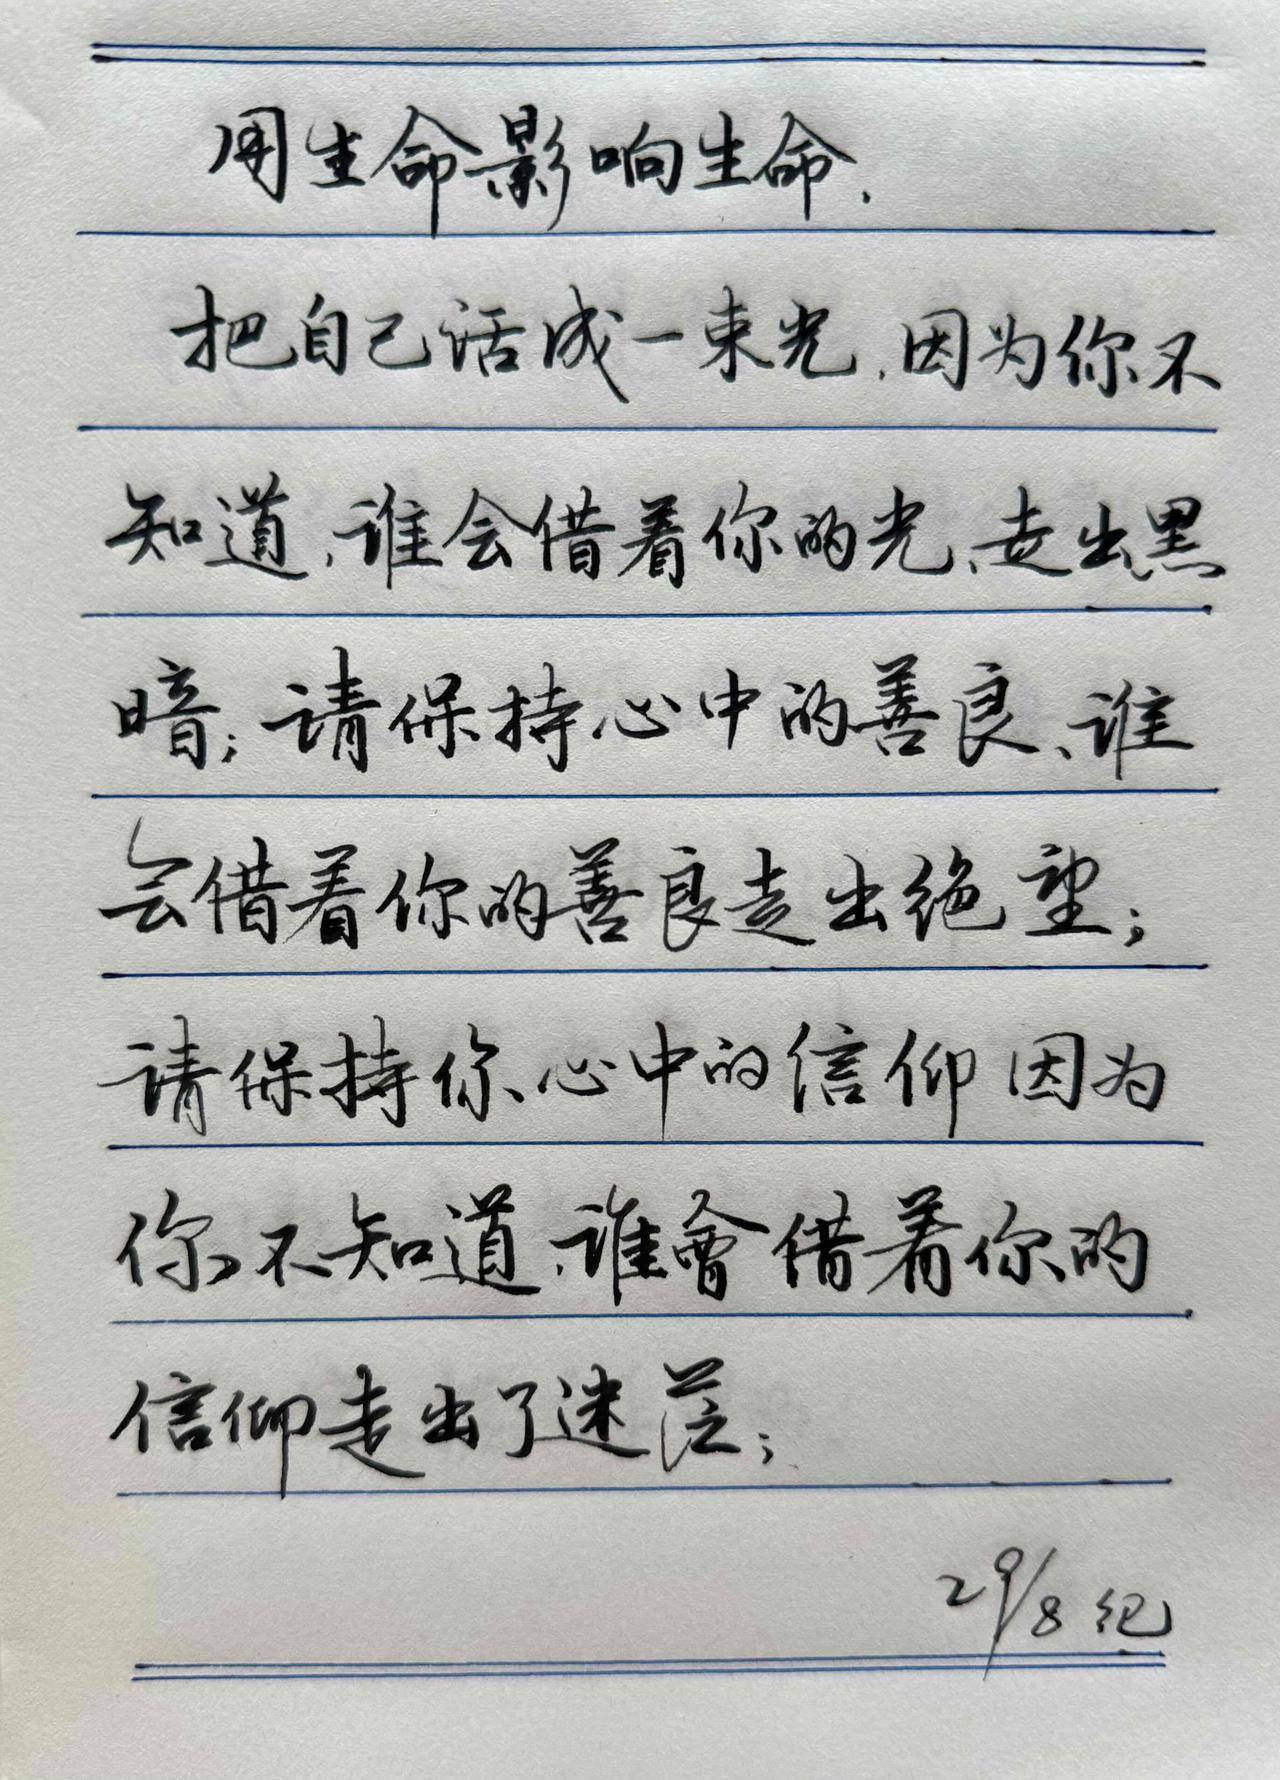 用生命影响生命.
把自己话成一束光,因为你不
知道,谁会借着你的光、走出黑
暗;请保持心中的善良、谁
会借着你的善良走出绝望;
请保持你心中的信仰因为
你不知道、谁會借着你的
信仰走出了迷茫;
29/8 纪